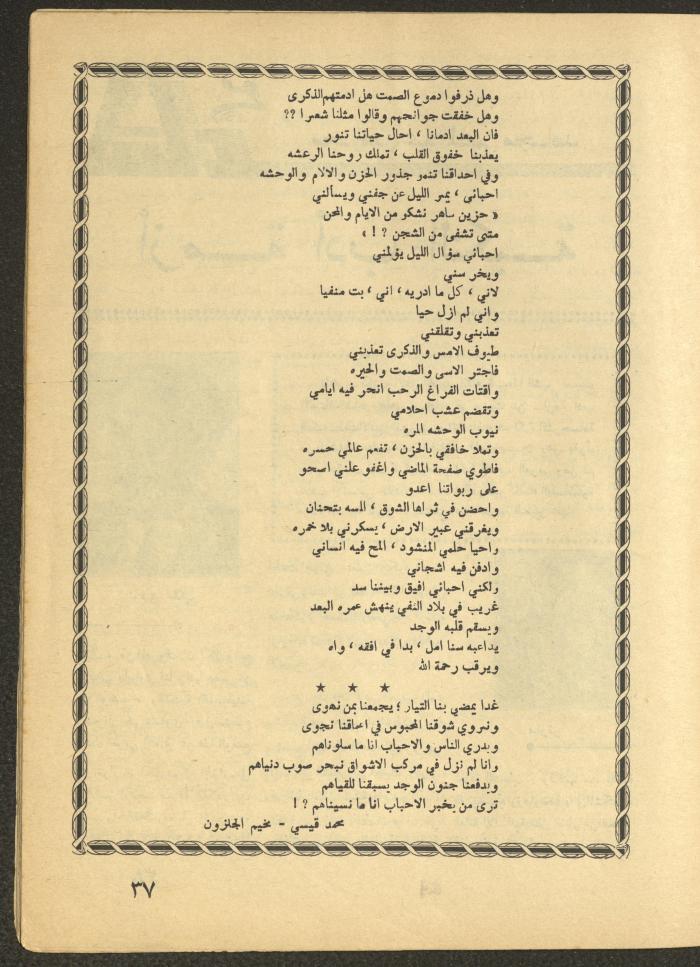 وهل ذرفوا دموع الصمت هل ادمتهم الذكرى
وهل خفقت جوانحهم وقالوا مثلنا شعرا ؟؟
فان البعد ادمانا ، احال حياتنا تنور
يعذبنا خفوق القلب ، تملك روحنا الرعشه
وفي احداقنا تنمو جذور الحزن والالام والوحشه
احبائي ، يمر الليل عن جفني ويسألني
« حزين ساهر نشكو من الايام والمحن
متى تشفى من الشجن ؟ ! »
احبائي سؤال الليل يؤلمني
ويخرسني
لاني ، كل ما ادريه ، اني ، بت منفيا
واني لم ازل حيا
تعذبني وتقلقني
طيوف الامس والذكرى تعذبني
فاجتر الاسى والصمت والحيره
واقتات الفراغ الرحب انحر فيه ايامي
وتقضم عشب احلامي
نيوب الوحشه المره
وتملا خافقي بالحزن ، تفعم عالمي حسره
فاطوي صفحة الماضي واغفو علني اصحو
على ربواتنا اعدو
واحضن في ثراها الشوق ، المسه بتحنان
ويغرقني عبير الارض ، يسكرني بلا خمره
واحيا حلمي المنشود ، المح فيه انساني
وادفن فيه اشجاني
ولكني احبائي افيق وبيننا سد
غريب في بلاد النفي ينهش عمره البعد
ويسقم قلبه الوجد
يداعبه سنا امل ، بدا في افقه ، واه
ويرقب رحمة الله
★ ★ ★
غدا يمضي بنا التيار ؛ يجمعنا بمن نهوى
ونروي شوقنا المحبوس في اعماقنا نجوى
ويدري الناس والاحباب انا ما سلوناهم
وانا لم نزل في مركب الاشواق نبحر صوب دنياهم
ويدفعنا جنون الوجد يسبقنا للقياهم
ترى من يخبر الاحباب انا ما نسيناهم ؟ !
محمد قيسي - مخيم الجلزون
٣٧